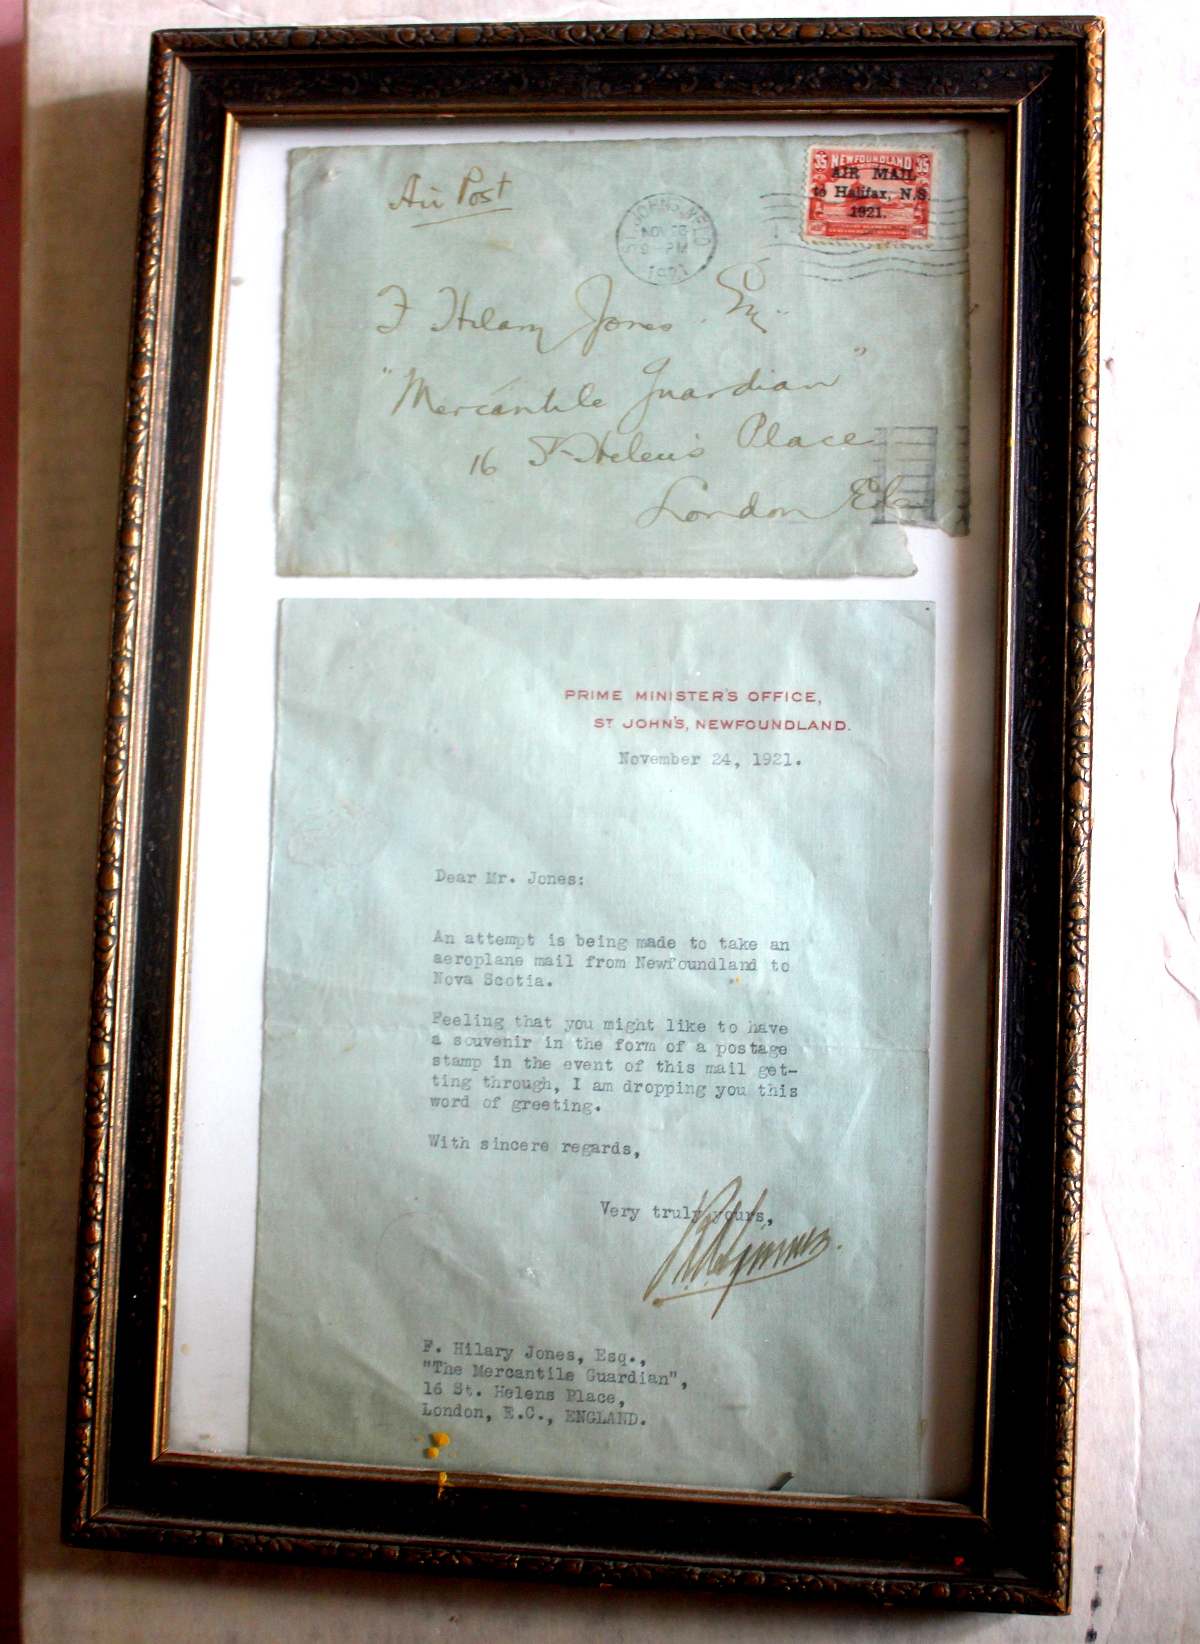 Air Post
ST. JOHN'S, NFLD
NOV
9-PM
1921
35 NEWFOUNDLAND 35
AIR MAIL
to Halifax, N.S.
1921.
F Hilary Jones Esq.
"Mercantile Guardian"
16 St Helen's Place
London E.C.
PRIME MINISTER'S OFFICE,
ST JOHN'S, NEWFOUNDLAND.
November 24, 1921.
Dear Mr. Jones:
An attempt is being made to take an
aeroplane mail from Newfoundland to
Nova Scotia.
Feeling that you might like to have
a souvenir in the form of a postage
stamp in the event of this mail get-
ting through, I am dropping you this
word of greeting.
With sincere regards,
Very truly yours,
F. Hilary Jones, Esq.,
"The Mercantile Guardian",
16 St. Helens Place,
London, E.C., ENGLAND.